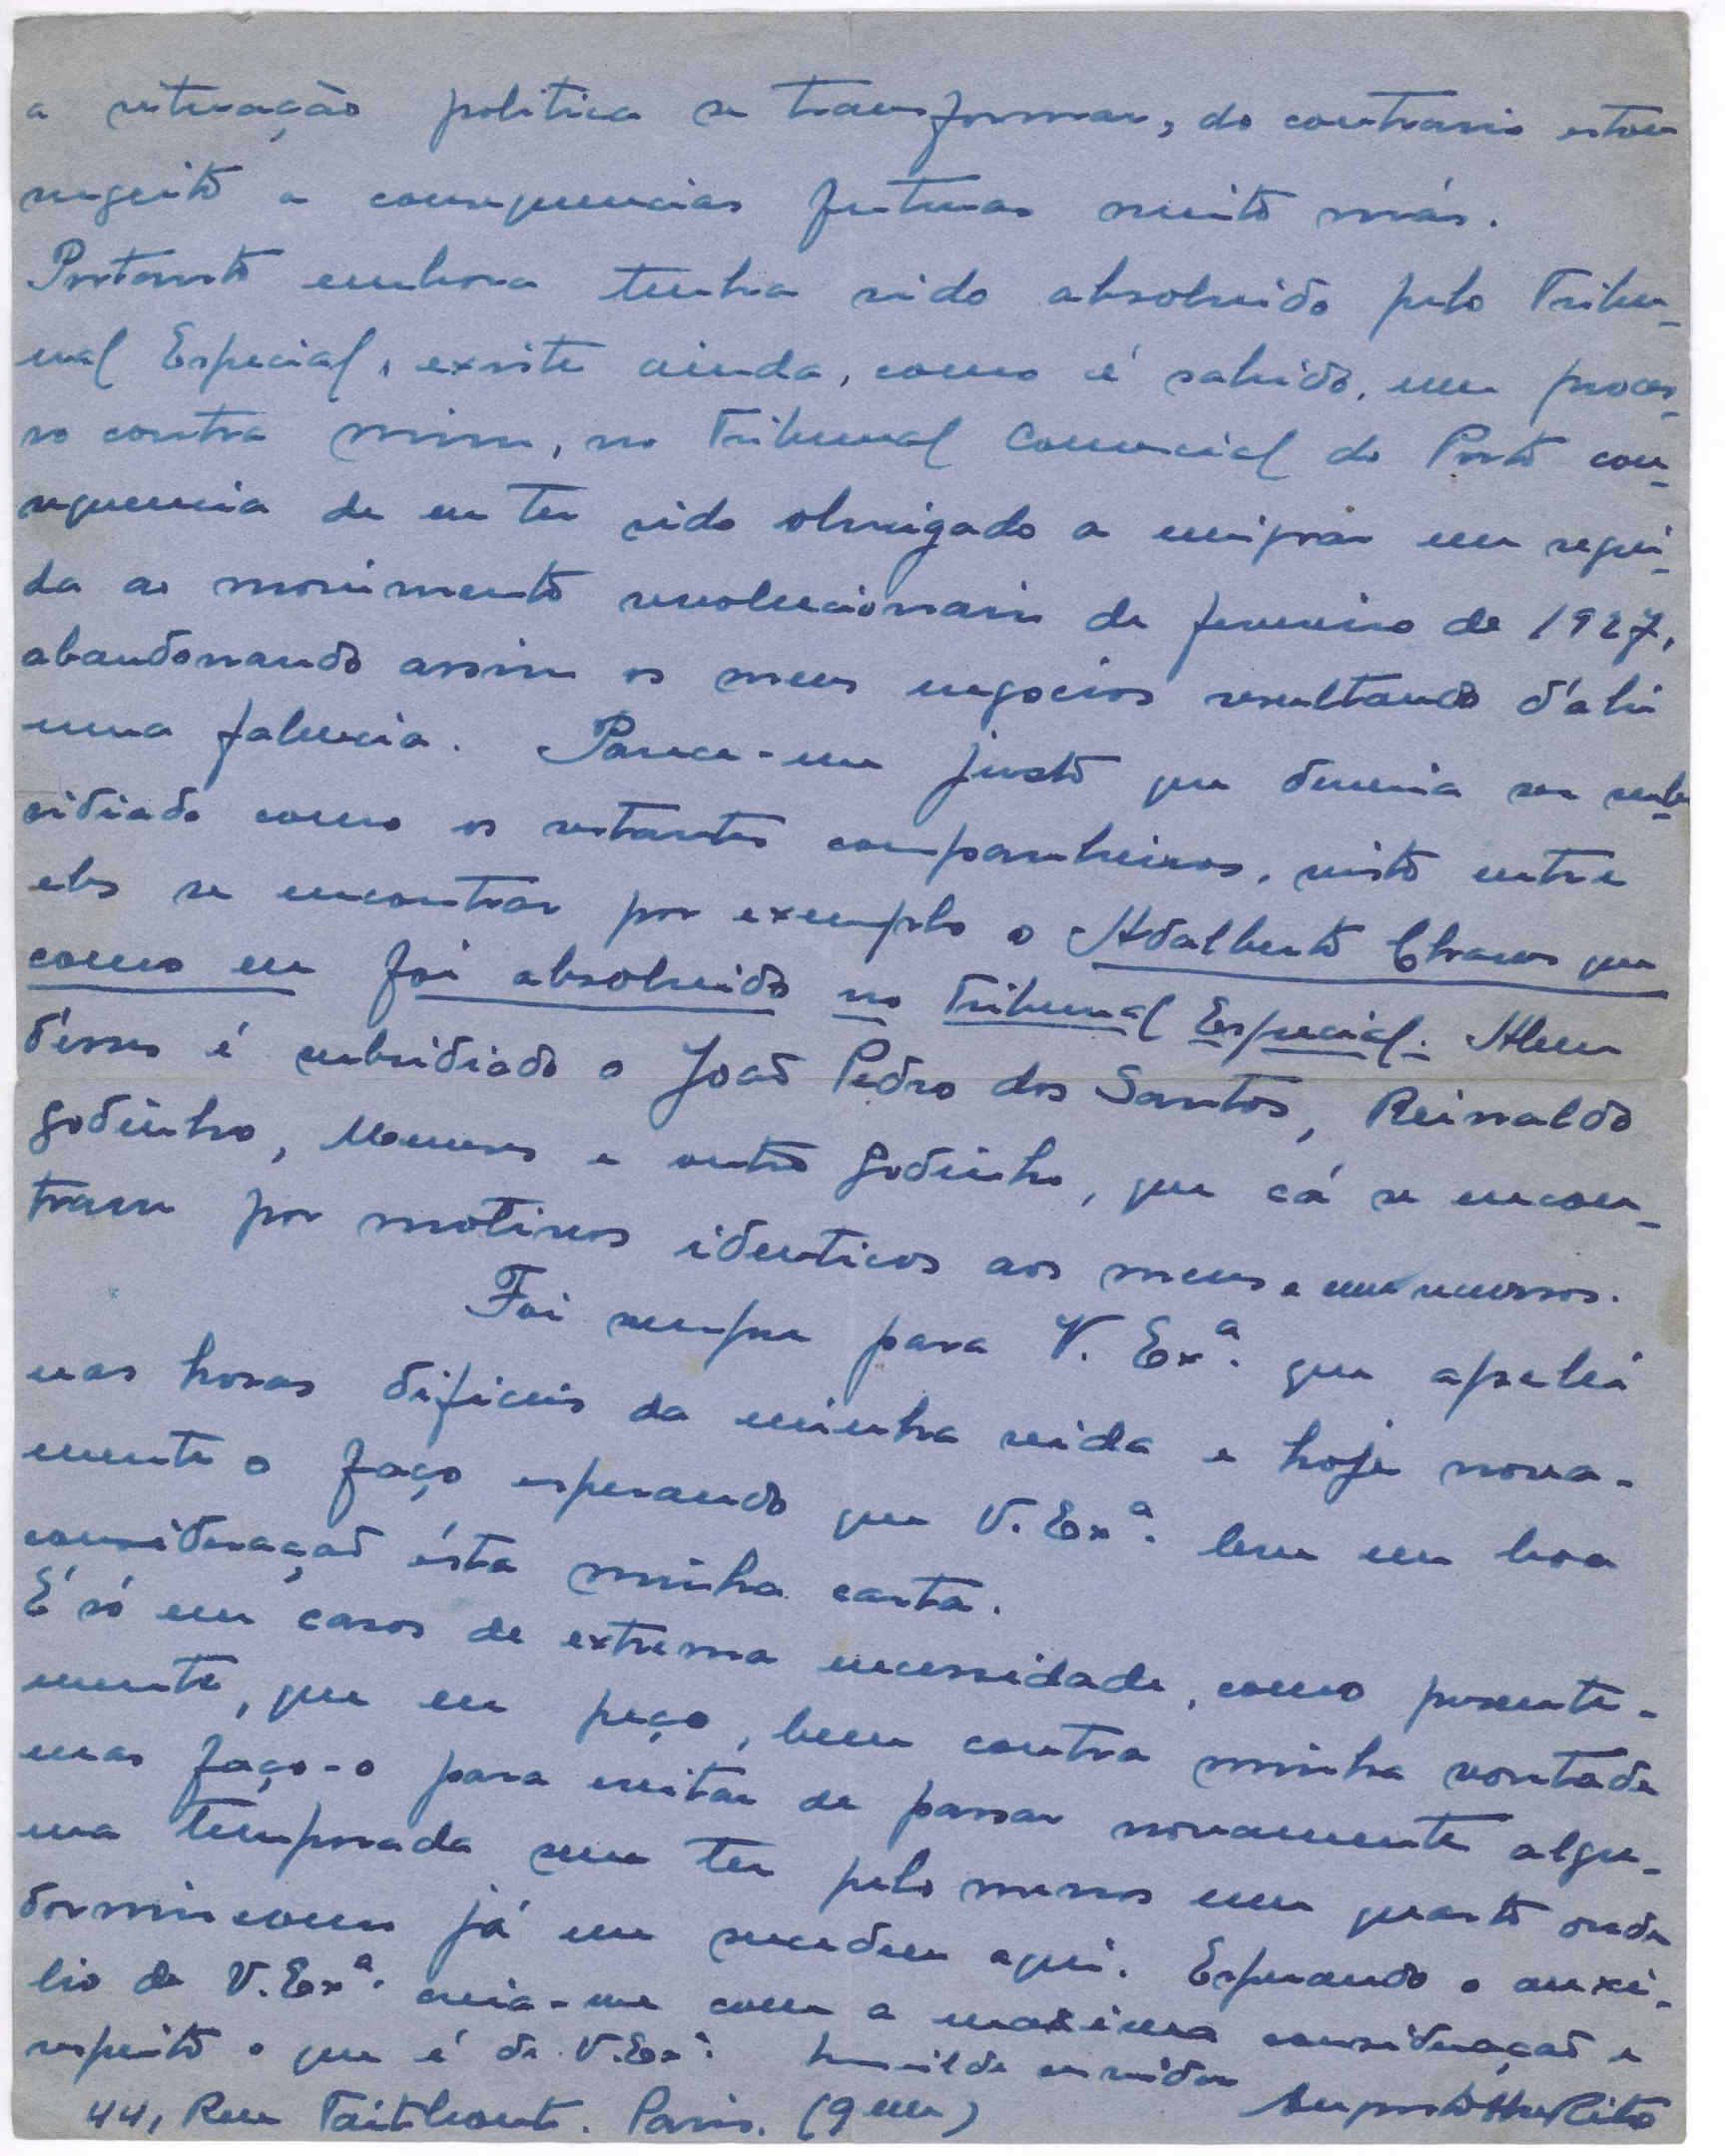 a situação politica se transformar, do contrario estou
sugeito a consequencias futuras muito más.
Portanto embora tenha sido absolvido pelo Tribu-
nal Especial, existe ainda, como é sabido, um proces-
so contra mim, no Tribunal Comercial do Porto con-
sequencia de eu ter sido obrigado a emigrar em segui-
da ao movimento revolucionario de fevereiro de 1927,
abandonando assim os meus negocios resultando d'ahi
uma falencia. Parece-me justo que deveria ser sub-
sidiado como os restantes companheiros, visto entre
eles se encontrar por exemplo o Adalberto Chaves que
como eu foi absolvido no Tribunal Especial. Alem
dêsses é subsidiado o João Pedro dos Santos, Reinaldo
Godinho, e outro Godinho, que cá se encon-
tram por motivos identicos aos meus e
Foi sempre para V. Exª. que apelei
nas horas dificeis da minha vida e hoje nova-
mente o faço esperando que V. Exª. leve em boa
consideração ésta minha carta.
É só em casos de extrema necessidade, como presente-
mente, que eu peço, bem contra minha vontade
mas faço-o para evitar de passar novamente algu-
ma temporada sem ter pelo menos um quarto onde
dormir como já me sucedeu aqui. Esperando o auxi-
lio de V. Exª. creia-me com a maxima consideração e
respeito o que é de V. Exª. humilde servidor
44, Rue Taitbout. Paris. (9eme)